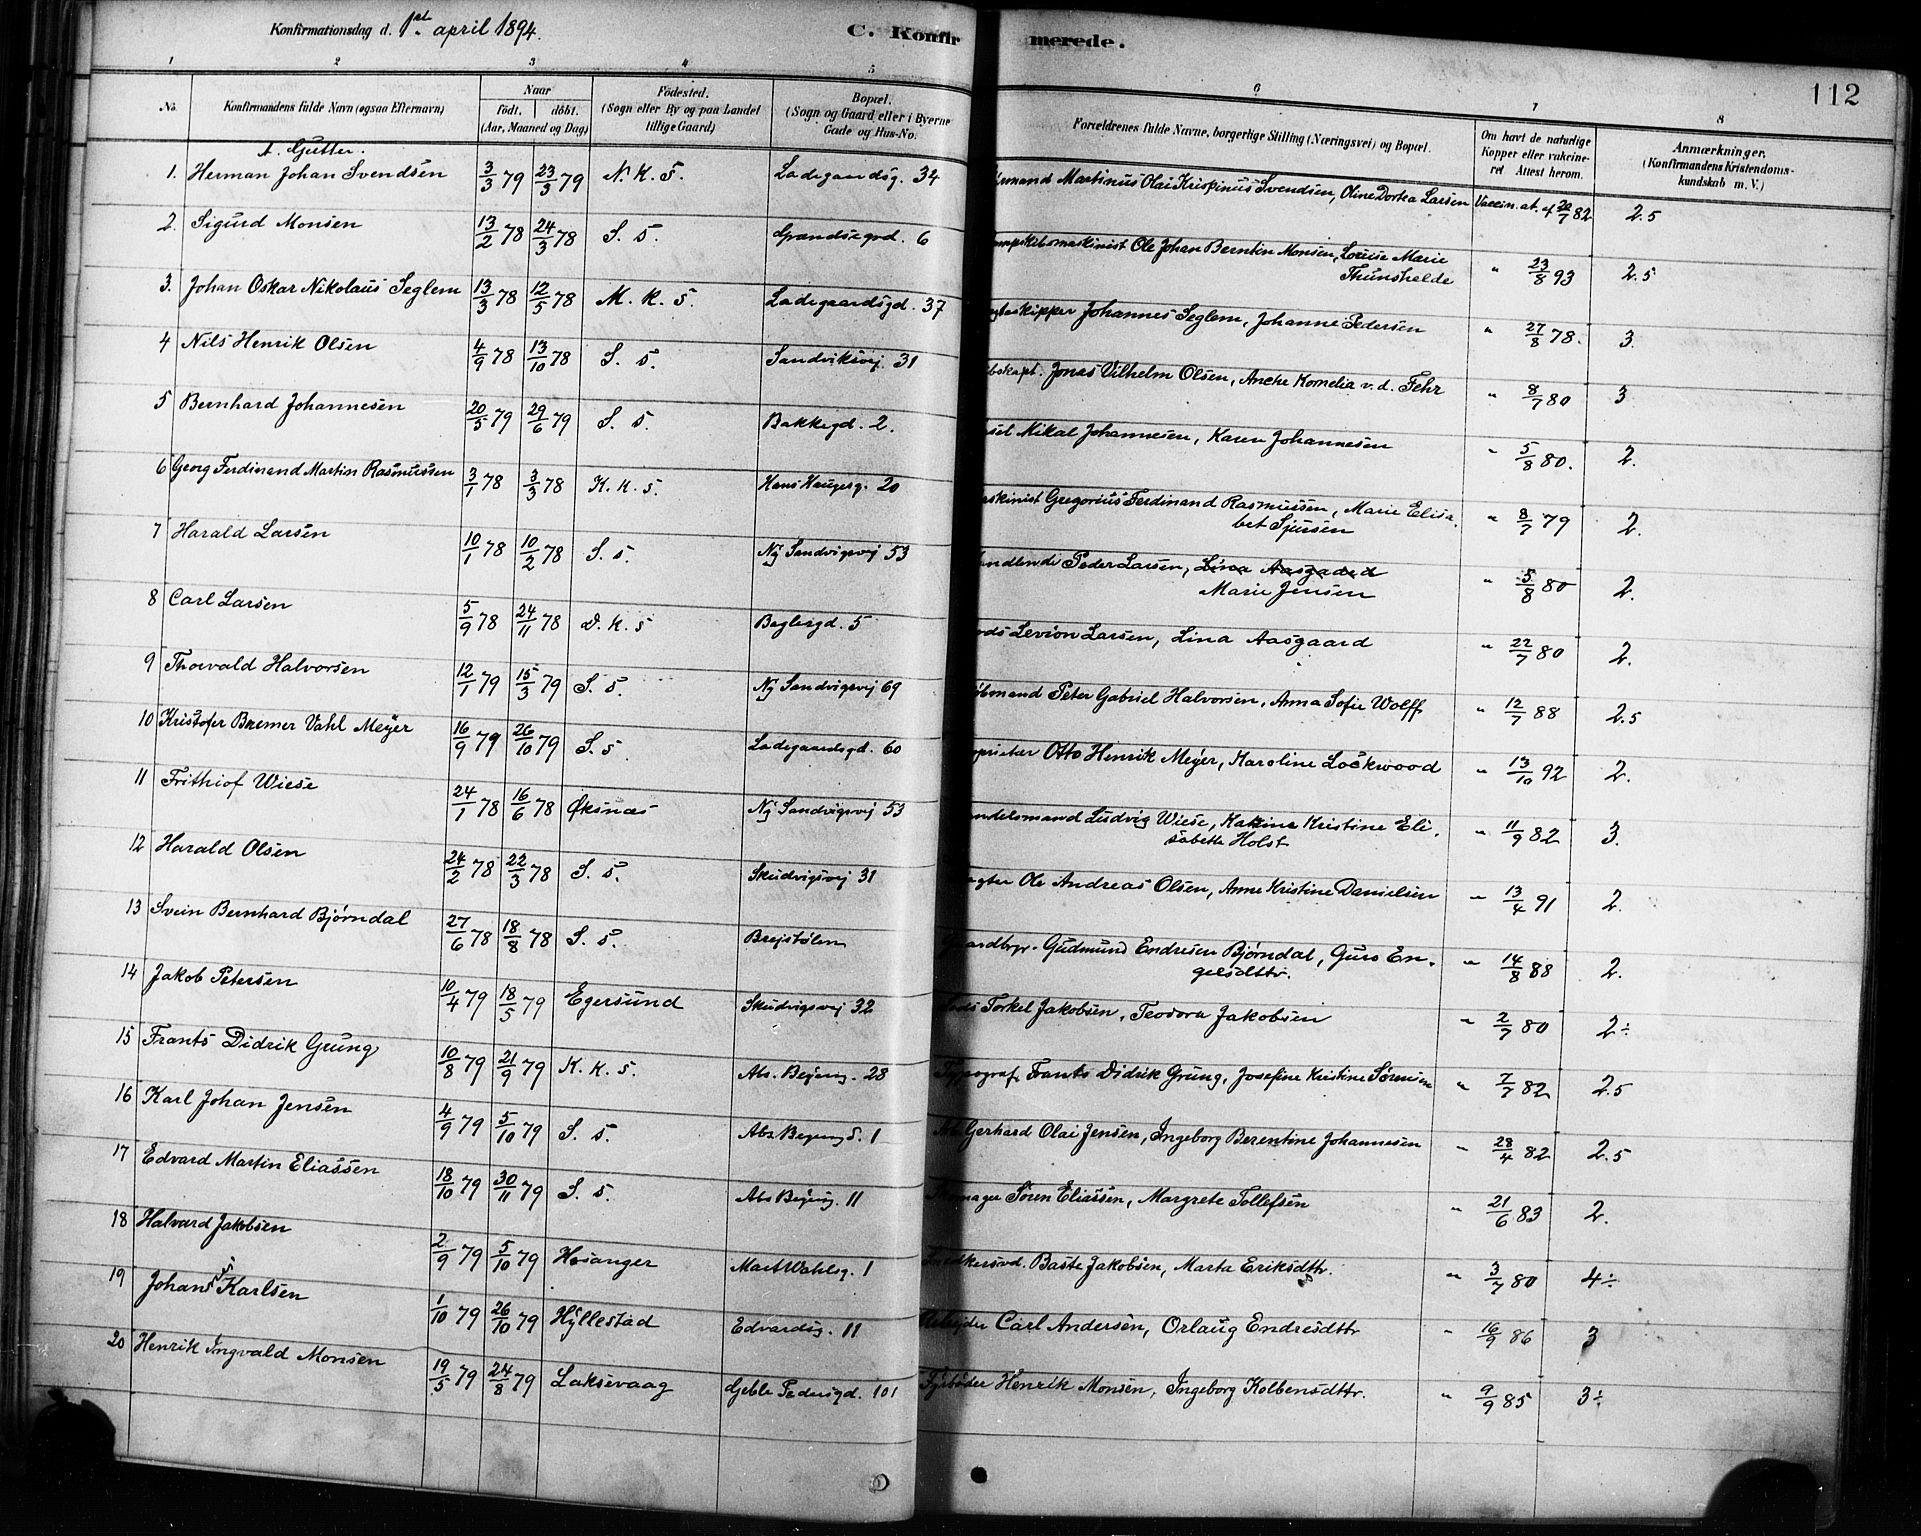 Konfirmationsdag d. 1ste april 1894.
C. Konfirmerede.
112
1 2 3 4 5 6 7 8
No. Konfirmandens fulde Navn (ogsaa Efternavn) Naar født. døbt. (Aar, Maaned og Dag) Fødested. (Sogn eller By og paa Landet tillige Gaard) Bopæl. (Sogn og Gaard eller i Byerne Gade og Hus-No. Forældrenes fulde Navne, borgerlige Stilling (Næringsvei) og Bopæl. Om havt de naturlige Kopper eller vakcineret Attest herom. Anmærkninger. (Konfirmandens Kristendomskundskab m. V.)
A. Gutter.
1. Herman Johan Svendsen 3/3 79 23/3 79 N. K. S. Ladegaardsg. 34 Martinus Olai Krispinus Svendsen, Oline Dortea Larsen Vaccin. at. af 20/7 82 2.5
2. Sigurd Monsen 13/2 78 24/3 78 S. S. Grændsegrd. 6 Ole Johan Berntin Monsen, Louise Marie
Thunshelde " 23/8 93 2.5
3. Johan Oskar Nikolaus Seglem 13/3 78 12/5 78 M. K. S. Ladegaardsgd. 37 Johannes Seglem, Johanne Pedersen " 27/8 78. 3.
4 Nils Henrik Olsen 4/9 78 13/10 78 S. S. Sandviksvej. 31 Jonas Vilhelm Olsen, Anche Kornelia v. d. Fehr " 8/7 80 3
5 Bernhard Johannesen 20/5 79 29/6 79 S. S. Bakkegd. 2. Mikal Johannesen, Karen Johannesen " 5/8 80. 2.
6 Georg Ferdinand Martin Rasmussen 3/1 78 3/3 78 K. K. S. Hans Haugesg. 20 Gregorius Ferdinand Rasmussen, Marie Elisa
bet Sjursen " 8/7 79 2.
7 Harald Larsen 10/1 78 10/2 78 S. S Ny Sandvigsvej 53 Peder Larsen, Lina Aasgaard
Marie Jensen " 5/8 80 2.
8 Carl Larsen 5/9 78 24/11 78 D. K. S Baglergd. 5 Levion Larsen, Lina Aasgaard " 22/7 80 2.
9 Thorvald Halvorsen 12/1 79 15/3 79 S. S. Ny Sandvigsvej 69 Peter Gabriel Halvorsen, Anna Sofie Wolff " 12/7 88 2.5
10 Kristofer Bremer Vahl Meyer 16/9 79 26/10 79 S. S Ladegaardsgd. 60 Otto Henrik Meyer, Karoline Lockwood " 13/10 92 2.
11 Frithiof Wiese 24/1 78 16/6 78 Øksnæs Ny Sandvigsvej 53 Ludvig Wiese, Katrine Kristine Eli
sabeth Holst " 11/9 82 3.
12 Harald Olsen 24/2 78 22/3 78 S. S. Skudvigsvej 31 Ole Andreas Olsen, Anne Kristine Danielsen " 13/4 91 2.
13 Svein Bernhard Bjørndal 27/6 78 18/8 78 S. S. Brejstølen Gaardbrgr. Gudmund Endresen Bjørndal, Guro En.
gelsdttr. " 14/8 88 2.
14 Jakob Petersen 10/4 79 18/5 79 Egersund Skudvigsvej 32 Lods Torkel Jakobsen, Teodora Jakobsen " 2/7 80 2÷
15 Frants Didrik Grung 10/8 79 21/9 79 K. K. S. Abs. Bejersg. 28 Typograf. Frants Didrik Grung, Josefine Kristine Sørensen " 7/7 82 2.5
16 Karl Johan Jensen 4/9 79 5/10 79 S. S. Abs. Bejersg. 1 Gerhard Olai Jensen, Ingeborg Berentine Johannesen " 28/4 82 2.5
17 Edvard Martin Eliassen 18/10 79 30/11 79 S. S. Abs Bejersg. 11 Søren Eliassen, Margrete Tollefsen " 21/6 83 2.
18 Halvard Jakobsen 2/9 79 5/10 79 Hosanger Mart Wahlsg. 1 Baste Jakobsen, Marta Eriksdttr. " 3/7 80 4÷
19 Johannes Karlsen 1/10 79 26/10 79 Hyllestad Edvardsg. 11 Arbejder Carl Andersen, Orlaug Endresdttr " 16/9 86 3
20 Henrik Ingvald Monsen 19/5 79 24/8 79 Laksevaag Gjeble Pedersgd. 101 Fyrbøder Henrik Monsen, Ingeborg Kolbensdttr. " 9/9 85 3÷